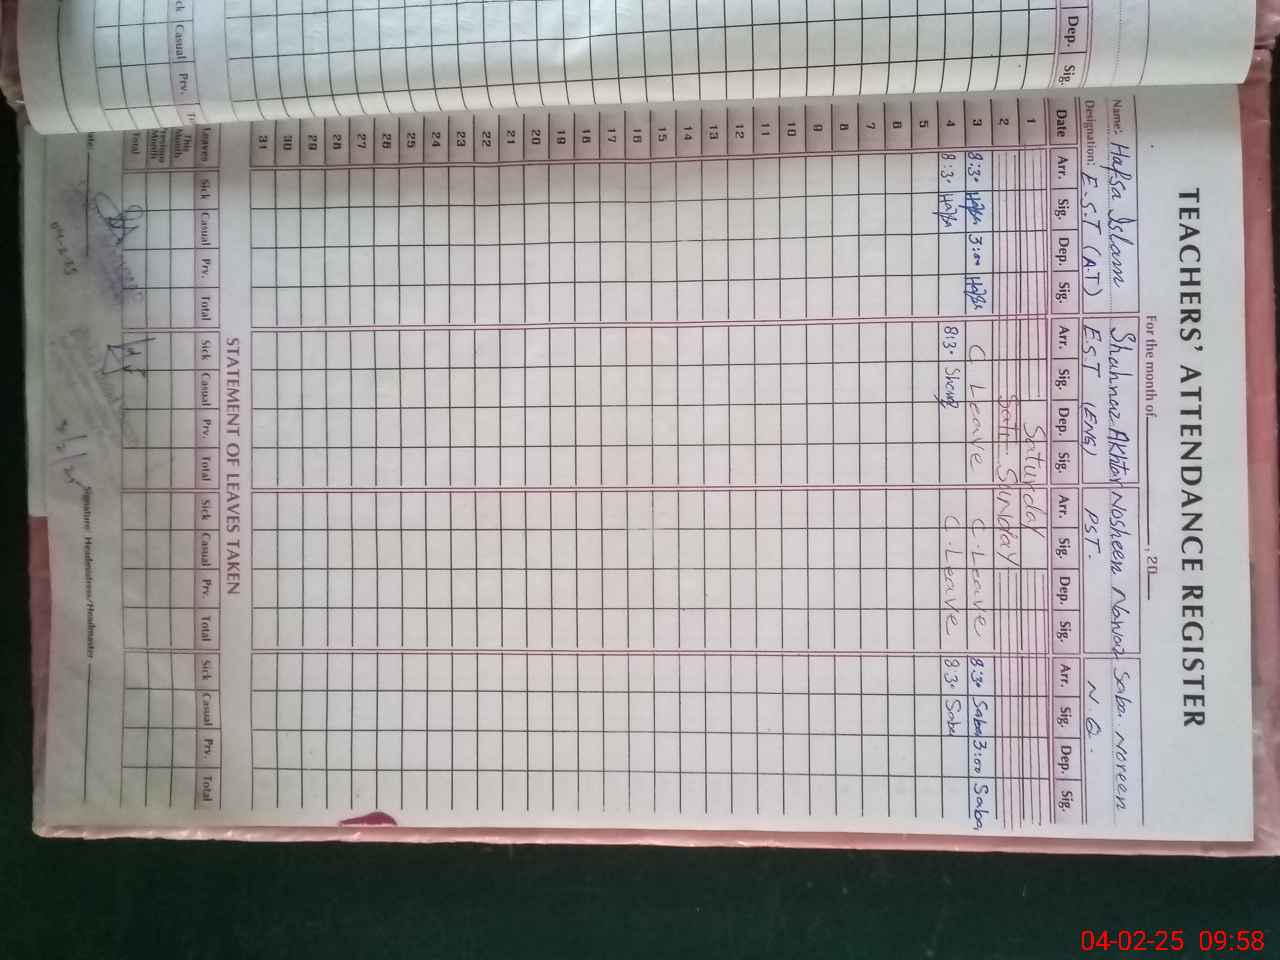 TEACHERS' ATTENDANCE REGISTER
For the month of , 20
Name: Hafsa Islam Shahnaz Akhtar Nosheen Nawaz Saba Noreen
Designation: E.S.T (A.T) E.S.T (ENG) PST. N.Q.
Dep. Sig.
Date Arr. Sig. Dep. Sig. Arr. Sig. Dep. Sig. Arr. Sig. Dep. Sig. Arr. Sig. Dep. Sig.
1 Saturday
2 Sunday
3 8:30 Hafsa 3:00 Hafsa C. Leave C. Leave 8:30 Saba 3:00 Saba
4 8:30 Hafsa 8:30 C. Leave 8:30 Saba
5
6
7
8
9
10
11
12
13
14
15
16
17
18
19
20
21
22
23
24
25
26
27
28
29
30
31
STATEMENT OF LEAVES TAKEN
Casual Prv.
Leaves Sick Casual Prv. Total Sick Casual Prv. Total Sick Casual Prv. Total Sick Casual Prv. Total
This Month
Previous Month
Total
Signature: Headmistress/Headmaster
04-02-25 09:58